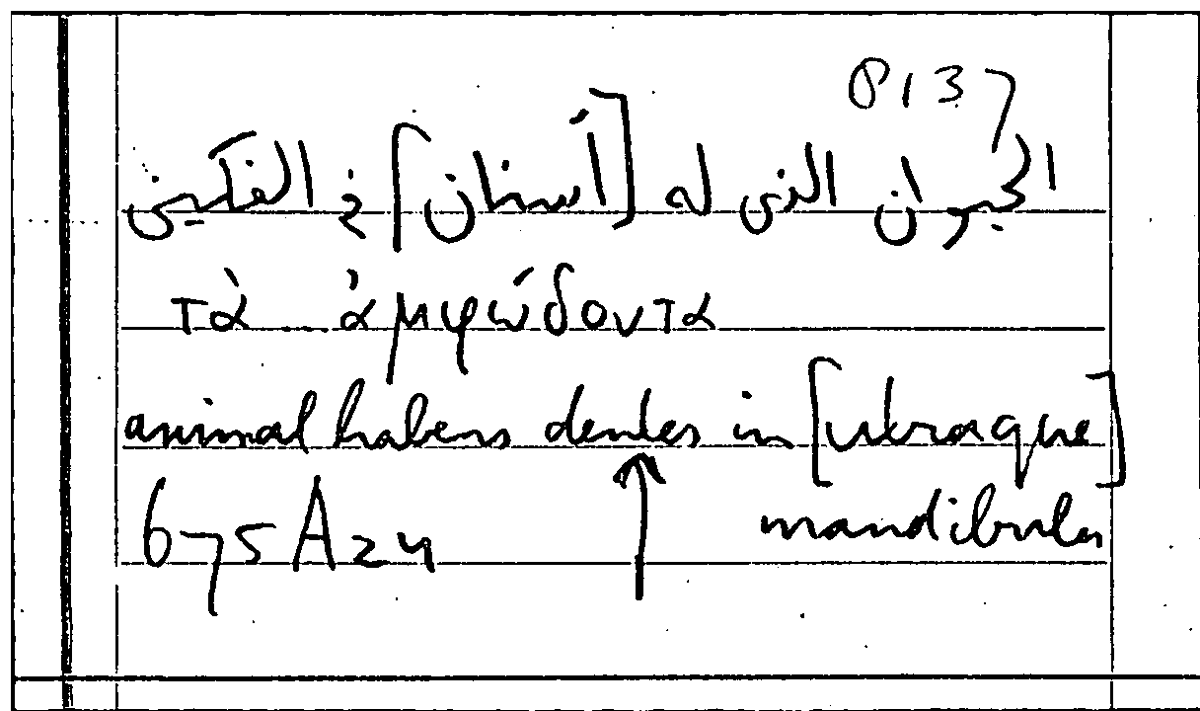 P137
الحيوان الذى له [أسنان] فى الفكين
τὰ ἀμφώδοντα
animal habens dentes in [utraque]
675A24 ↑ mandibula